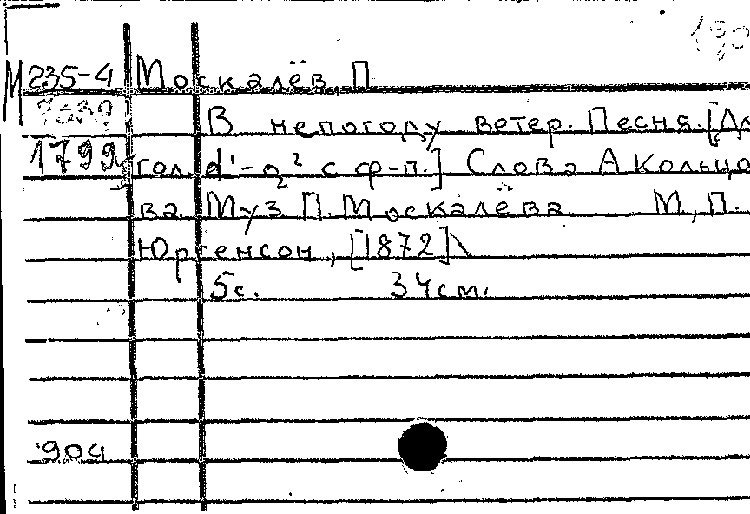 190
М 235-4 Москалёв, П.
7-39
1799 В непогоду ветер. Песня. [Дл
гол. d¹-g² с ф-п.] Слова А Кольцо
ва. Муз П. Москалёва М., П.
Юргенсон, [1872]
5с. 34см.
904